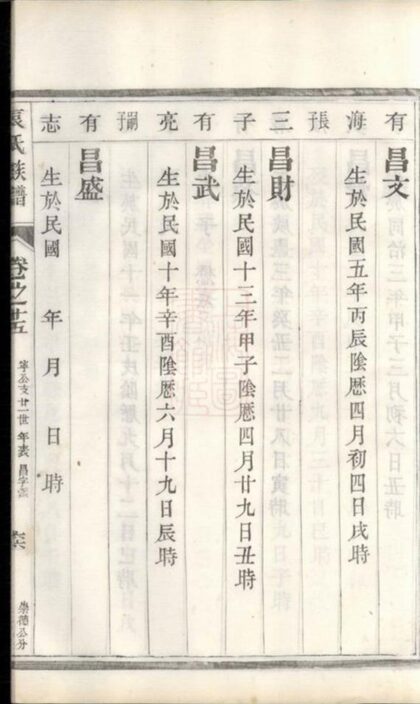 有 昌文
海 生於民國五年丙辰陰歷四月初四日戌時
三 昌財
子 生於民國十三年甲子陰歷四月廿九日丑時
有 昌武
亮 生於民國十年辛酉陰歷六月十九日辰時
有 昌盛
志 生於民國 年 月 日 時
袁氏族譜
卷之廿五
寧公支廿一世年表 昌字派
崇德公分